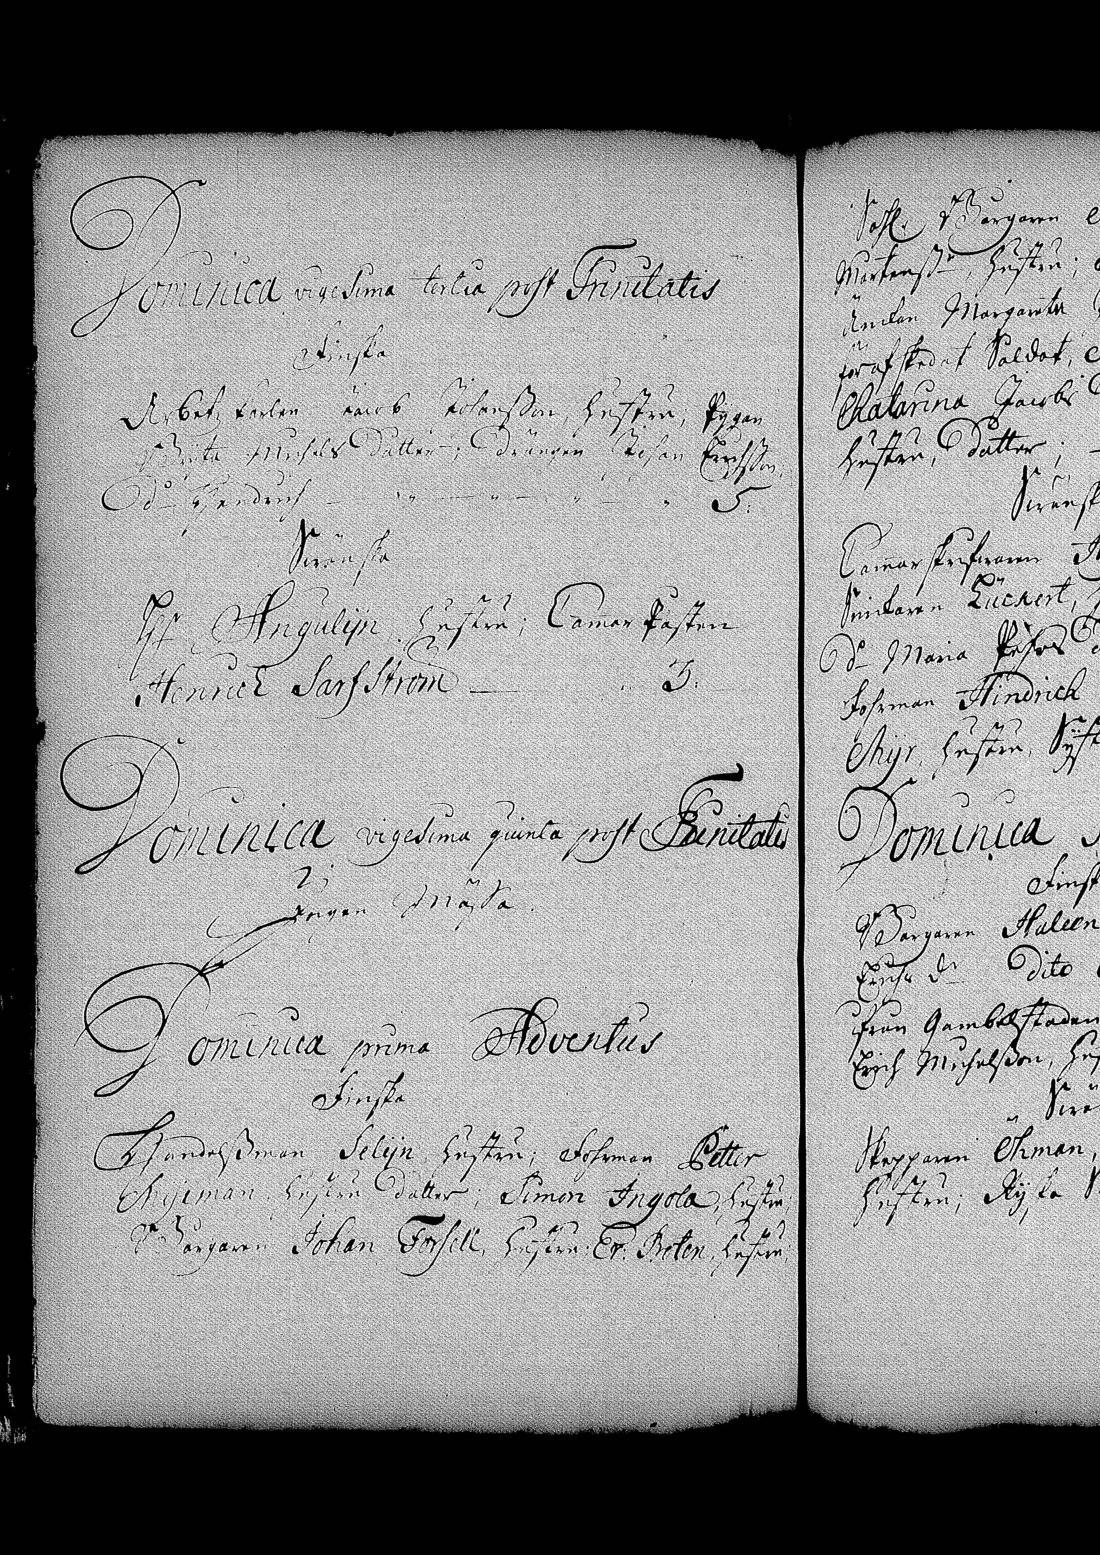 Dominica vigesima tertia post Trinitatis
Finska
Arbetzkarlen Jacob Johansson, hustru; Pygan
Brita Michels Datter; Drängen Johan Erichsson,
Do Hendrich 5.
Swänska
H: Angulijn hustru;
Henrich Sarfström 3.
Dominica vigesima quinta post Trinitatis
Ingen Mässa
Dominica prima Adventus
Finska
Handelsman Selijn hustru; Fohrman Petter
Nyman, hustru Datter; Simon Ingola, hustru;
Borgaren Johan Forsell, hustru; Er: Boten, hustru;
Sahl. Borgaren
Mårtenss: hustru;
Änkan Margareta
för afskedat Soldat,
Catarina Jacobs
hustru, Datter;
Swänsk
Lückert,
Do Maria
Fohrman Hindrich
hustru,
Dominica
Finsk
Borgaren Haleen
Erichs Dr Dito
från Gambelstaden
Erich Michelsson,
Skepparen Öhman,
hustru;